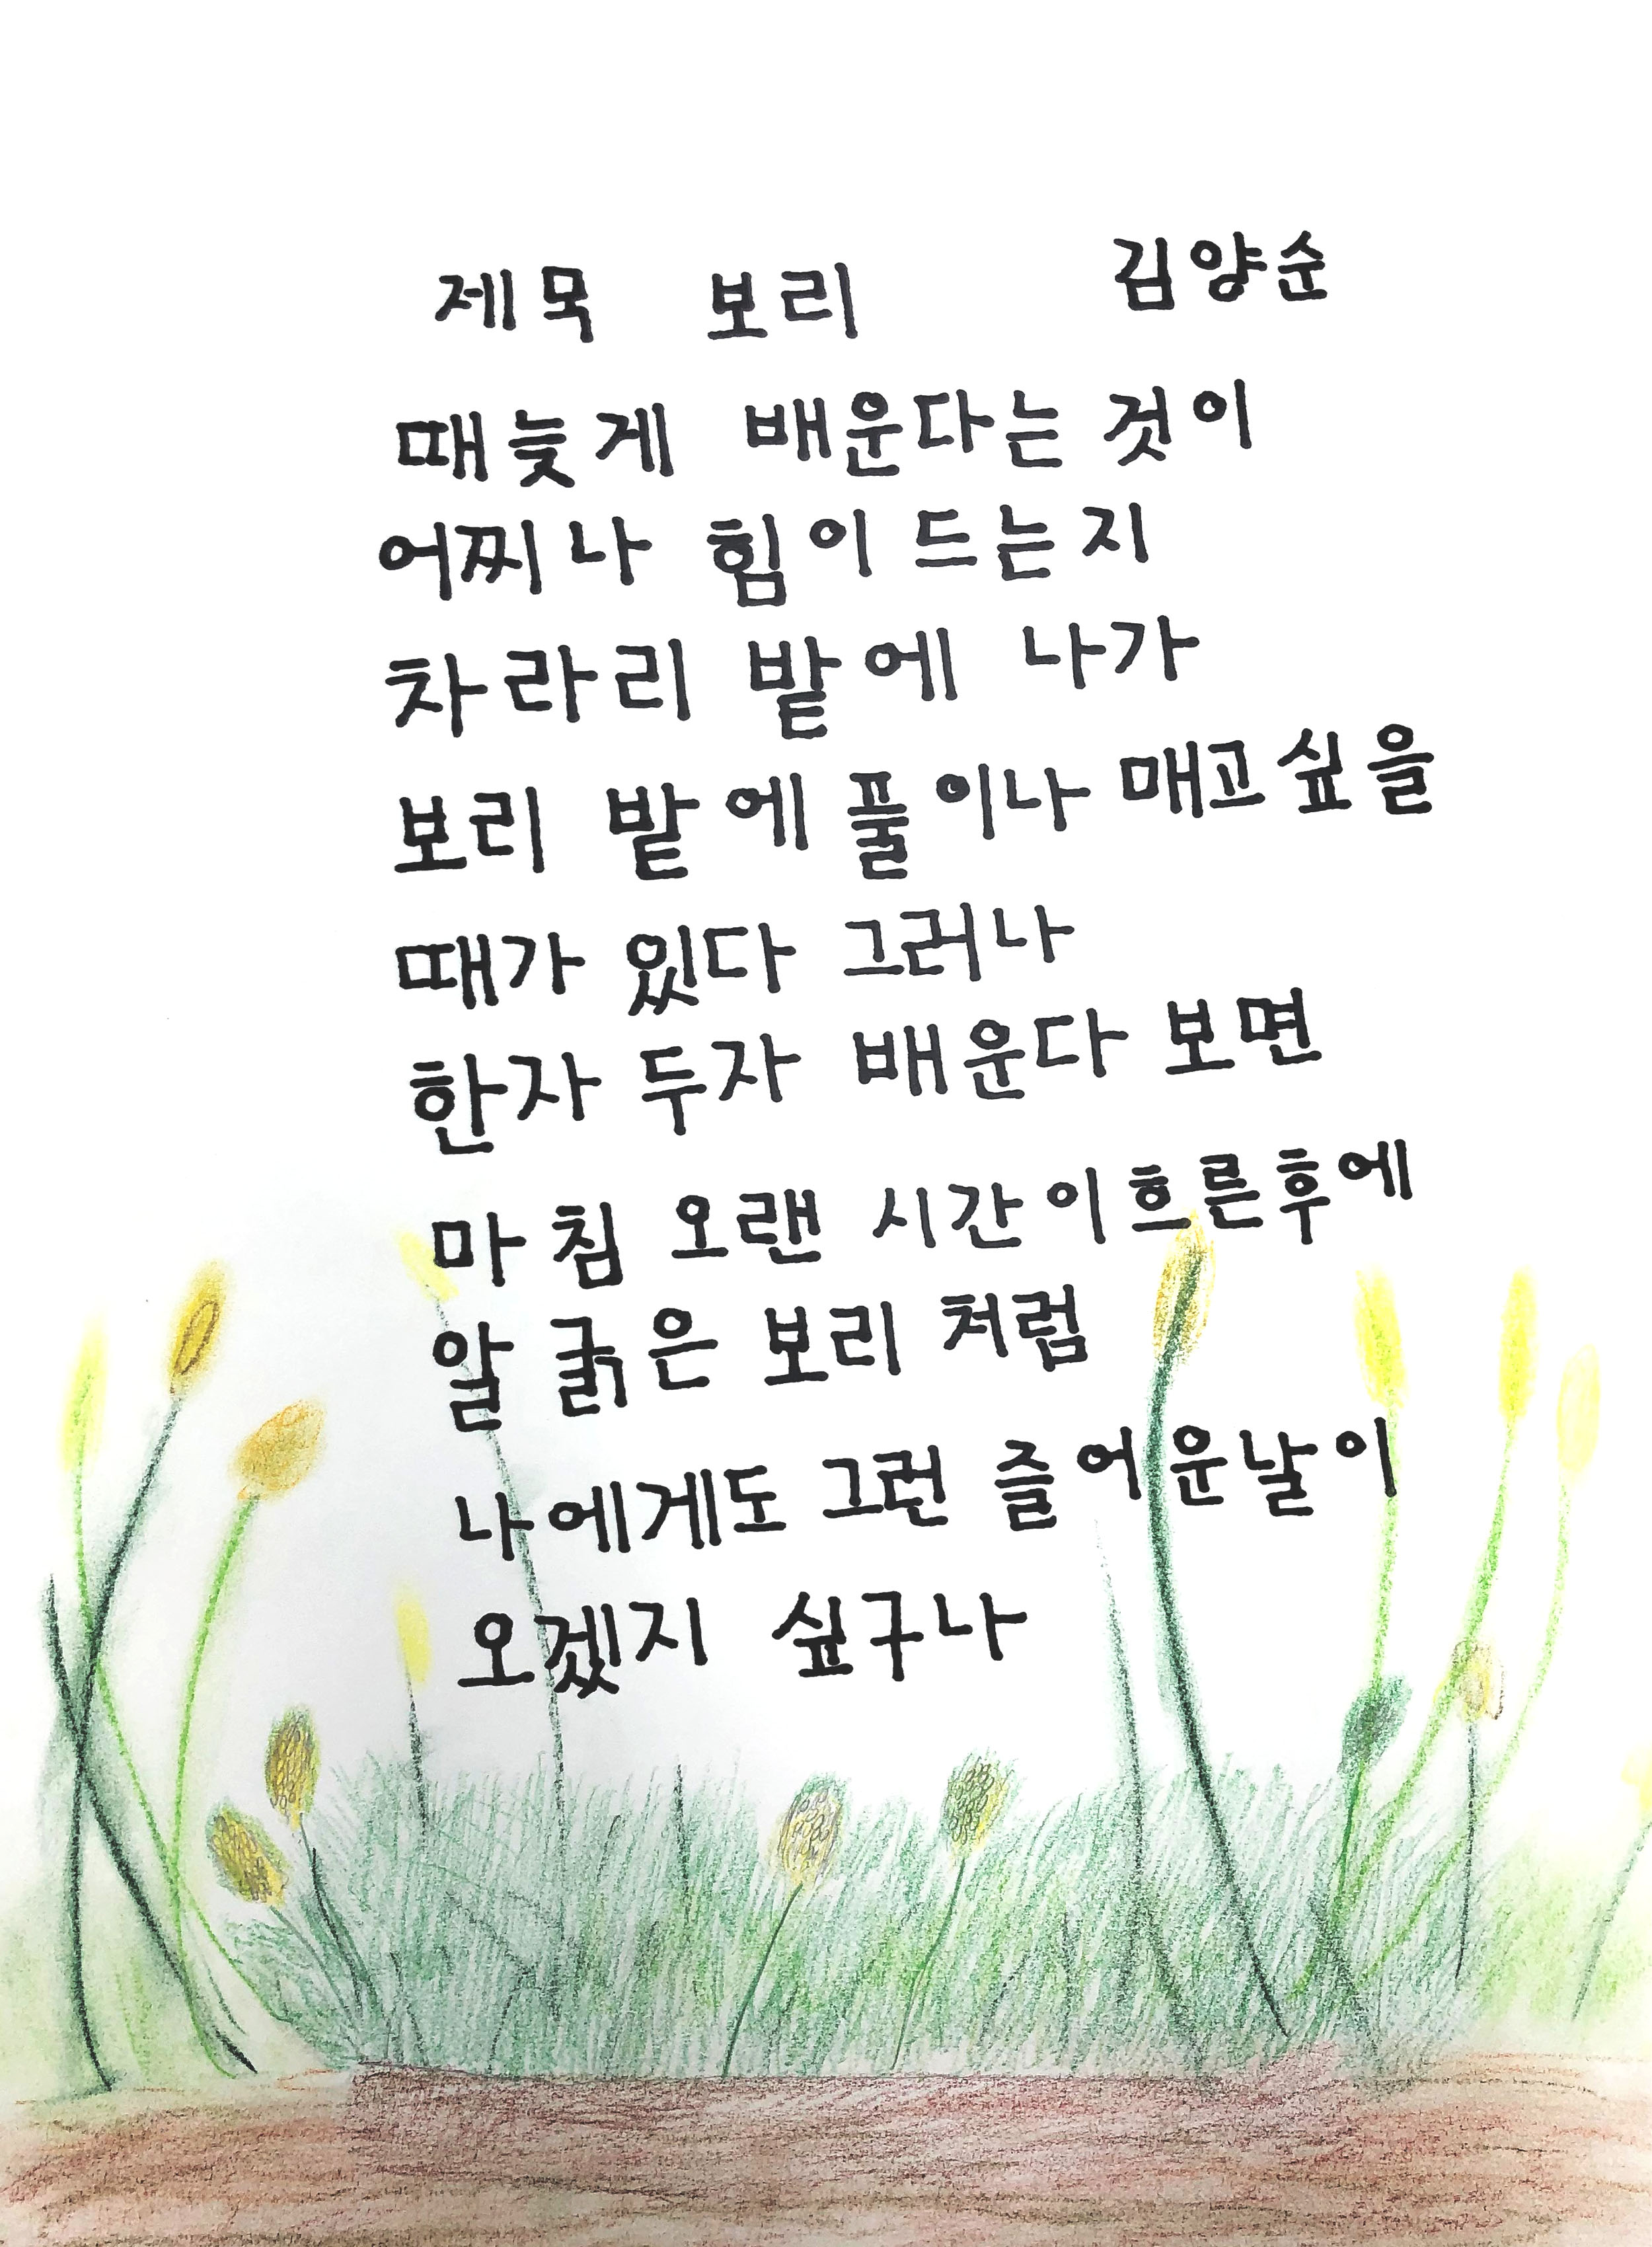 제목 보리 김양순
때늦게 배운다는 것이
어찌나 힘이 드는지
차라리 밭에 나가
보리 밭에 풀이나 매고싶을
때가 있다 그러나
한자 두자 배운다 보면
마침 오랜 시간이흐른후에
알 굵은 보리 처럼
나에게도 그런 즐어운날이
오겠지 싶구나